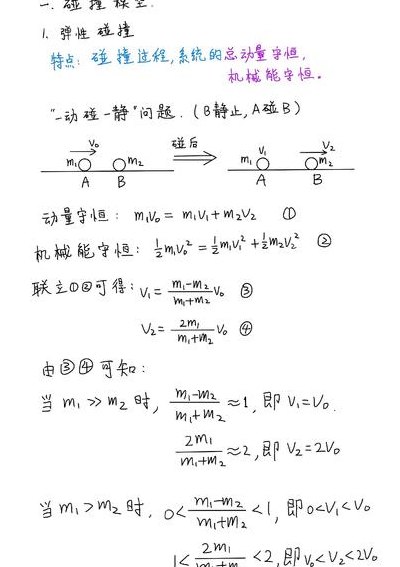 一. 碰撞模型.
1. 弹性碰撞
特点: 碰撞过程, 系统的总动量守恒,
机械能守恒.
"一动碰一静"问题. (B静止, A碰B)
V₀ 碰后 V₁ V₂
m₁ m₂ m₁ m₂
A B A B
动量守恒: m₁V₀ = m₁V₁ + m₂V₂ ①
机械能守恒: ½m₁V₀² = ½m₁V₁² + ½m₂V₂² ②
联立①②可得: V₁ = (m₁-m₂)/(m₁+m₂) V₀ ③
V₂ = 2m₁/(m₁+m₂) V₀ ④
由③④可知:
当 m₁ >> m₂ 时, (m₁-m₂)/(m₁+m₂) ≈ 1, 即 V₁=V₀.
2m₁/(m₁+m₂) ≈ 2, 即 V₂=2V₀
当 m₁ > m₂ 时, 0 < (m₁-m₂)/(m₁+m₂) < 1, 即 0<V₁<V₀
1 < 2m₁/(m₁+m₂) < 2, 即 V₀<V₂<2V₀